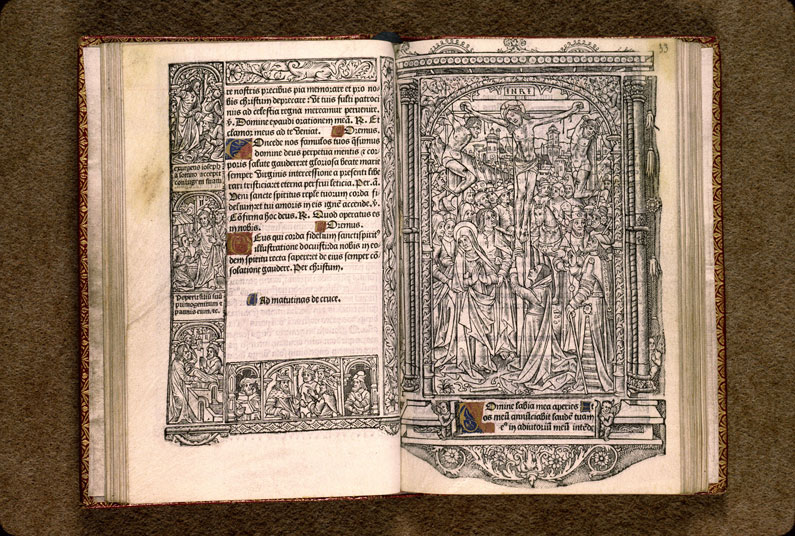 te nostris precibus pia memorare et pro no
bis christum deprecare: Ut tuis fulti patroci
niis ad celestia regna mereamur pervenire.
v. Domine exaudi orationem meã. R. Et
clamor meus ad te veniat. Oremus.
Oncede nos famulos tuos q̃sumus
domine deus perpetua mentis & cor
poris salute gaudere: et gloriosa beate marie
semper virginis intercessione a presenti libe
rari tristicia: et eterna perfrui leticia. Per. ã.
Veni sancte spiritus reple tuorum corda fi
delium: et tui amoris in eis ignẽ accende. v.
Cõfirma hoc deus. R. Quod operatus es
in nobis. Oremus.
Eus qui corda fidelium sancti spirit9
illustratione docuisti: da nobis in eo
dem spiritu recta sapere: et de eius semper cõ
solatione gaudere. Per christum.
Ad matutinas de cruce.
exurgens ioseph
a somno accepit
Peperit filiũ suũ
primogenitum et
pannis eum. &c.
33
INRI
Omine labia mea aperies Et
os meũ annũciabit laudẽ tuam
in adiutoriũ meũ intẽde